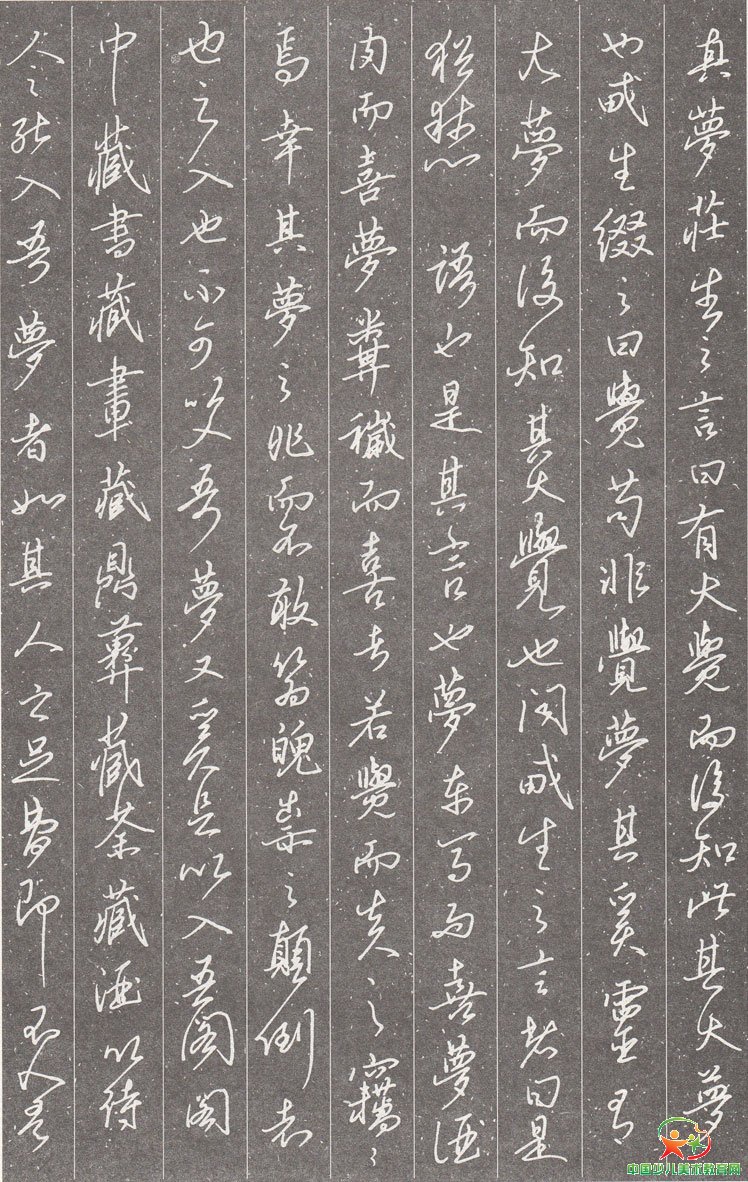 真夢莊生之言曰有大覺而後知此其大夢
也戫生綴之曰覺苟非覺夢其奚靈有
大夢而後知其大覺也聞戫生之言者曰是
猶 語也是其言也夢 而喜夢酒
肉而喜夢糞穢而喜者若覺而失之竊竊
焉幸其夢之兆而不敢 之顛倒者
也之入也不可以入吾夢又奚足以入吾閣閣
中藏書藏畫藏鼎彝藏茶藏酒以待
人之能入吾夢者如其人之足 即不入吾
中国少儿美术教育网